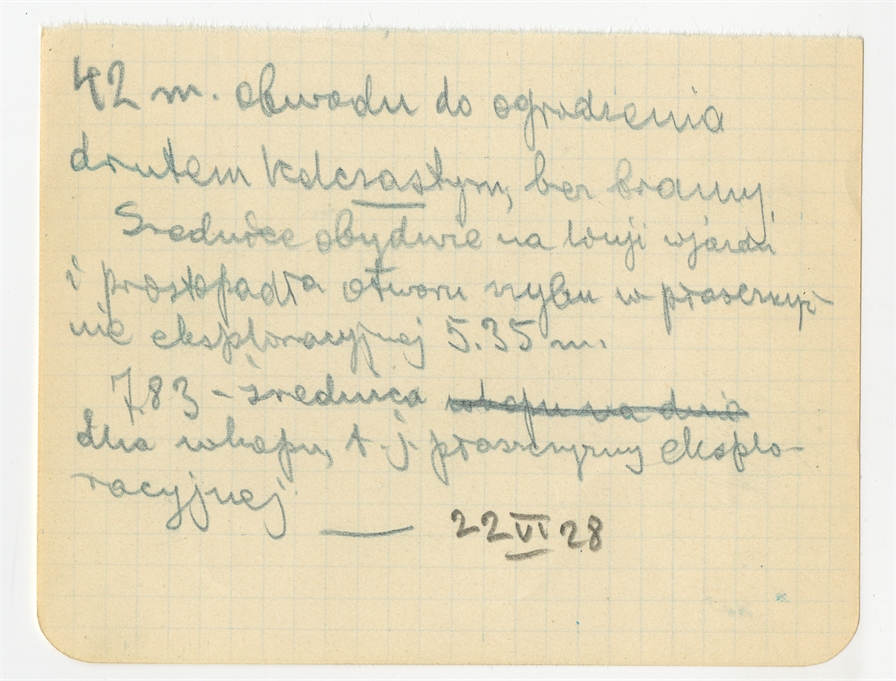 42 m. obwodu do ogrodzenia
drutem kolczastym, bez bramy.
Średnice obydwie na linji wjazdu
i prostopadła otworu szybu w płaszczyź-
nie eksploracyjnej 5.35 m.
7.83 - średnica wkopu na dnie
dna wkopu, t.j. płaszczyzny eksplo-
racyjnej.
22 VI 28